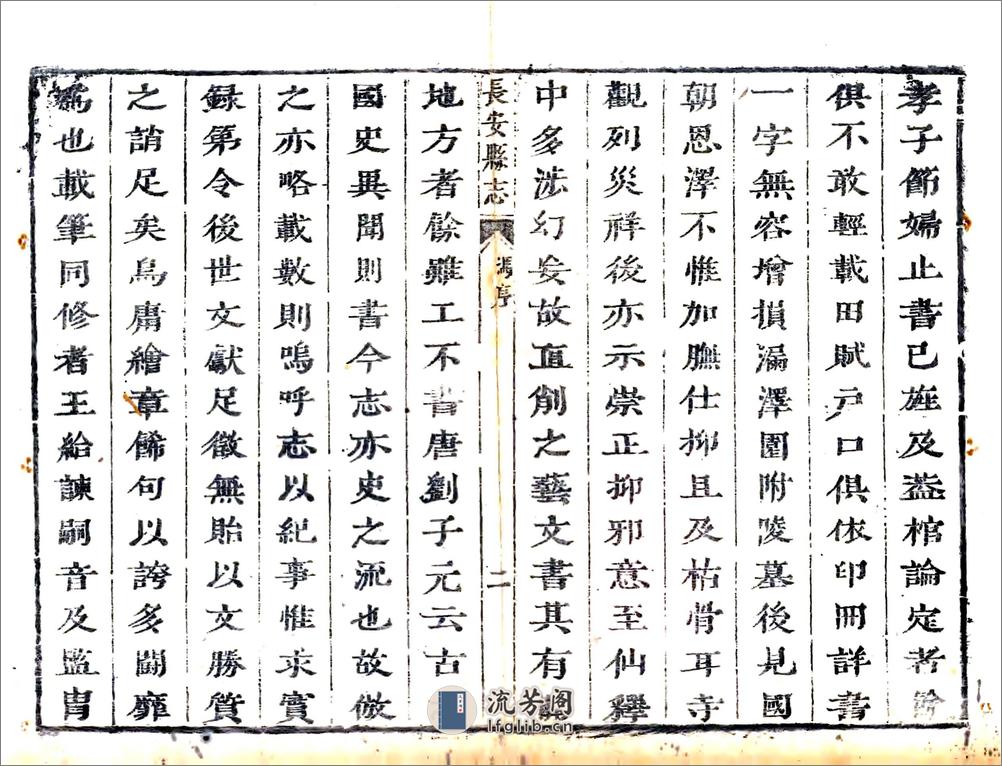 孝子節婦止書已旌及蓋棺論定者餘
俱不敢輕載田賦戸口俱依印冊詳書
一字無容增損漏澤園附陵墓後見國
朝恩澤不惟加膴仕抑且及枯骨耳寺
觀列災祥後亦示崇正抑邪意至仙釋
中多涉幻妄故直削之藝文書其有
長安縣志 馮序 二
地方者餘雖工不書唐劉子元云古
國史異聞則書今志亦史之流也故倣
之亦略載數則嗚呼志以紀事惟求實
錄第令後世文獻足徵無貽以文勝質
之誚足矣烏庸繪章飾句以誇多鬪靡
爲也載筆同修者王給諫嗣音及監胄
流芳阁
lfglib.cn